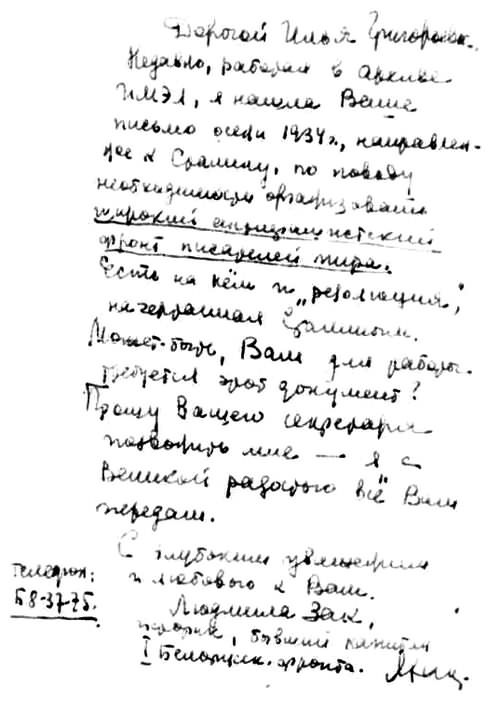 Дорогой Илья Григорьевич.
Недавно, работая в архиве
ИМЭЛ, я нашла Ваше
письмо осени 1934 г., направлен-
ное к Сталину, по поводу
необходимости организовать
широкий антифашистский
фронт писателей мира.
Есть на нём и „резолюция",
начертанная Сталиным.
Может быть, Вам для работы
требуется этот документ?
Прошу Вашего секретаря
позвонить мне — я с
великой радостью всё Вам
передам.
С глубоким уважением
и любовью к Вам.
Людмила Зак,
историк, бывший капитан
I Белорусск. фронта.
Телефон:
Б 8-37-75.